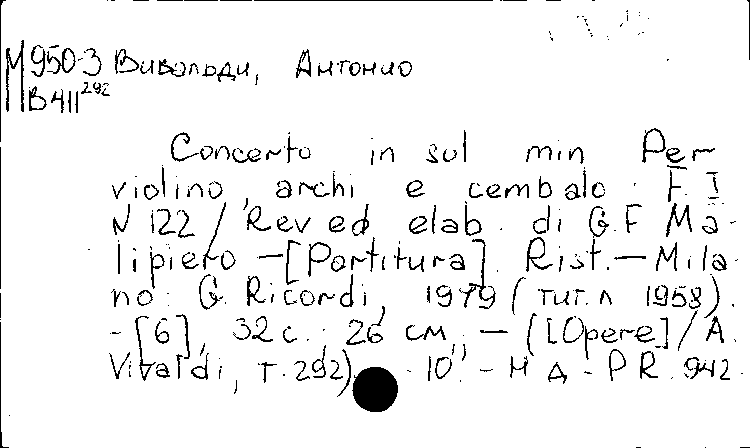 М950-3 Вивольди, Антонио
В411 292
Concerto in sol min Per
violino, archi e cembalo: F. I
N 122 / Rev ed elab. di G.F Ma-
lipiero —[Partitura]. Rist.— Mila-
no: G. Ricordi, 1979 (тит. л 1958).
-[6], 32 с.; 26 см, — ([Opere] / A.
Vivaldi, т. 292) 10". - Н Д - P R. 942.